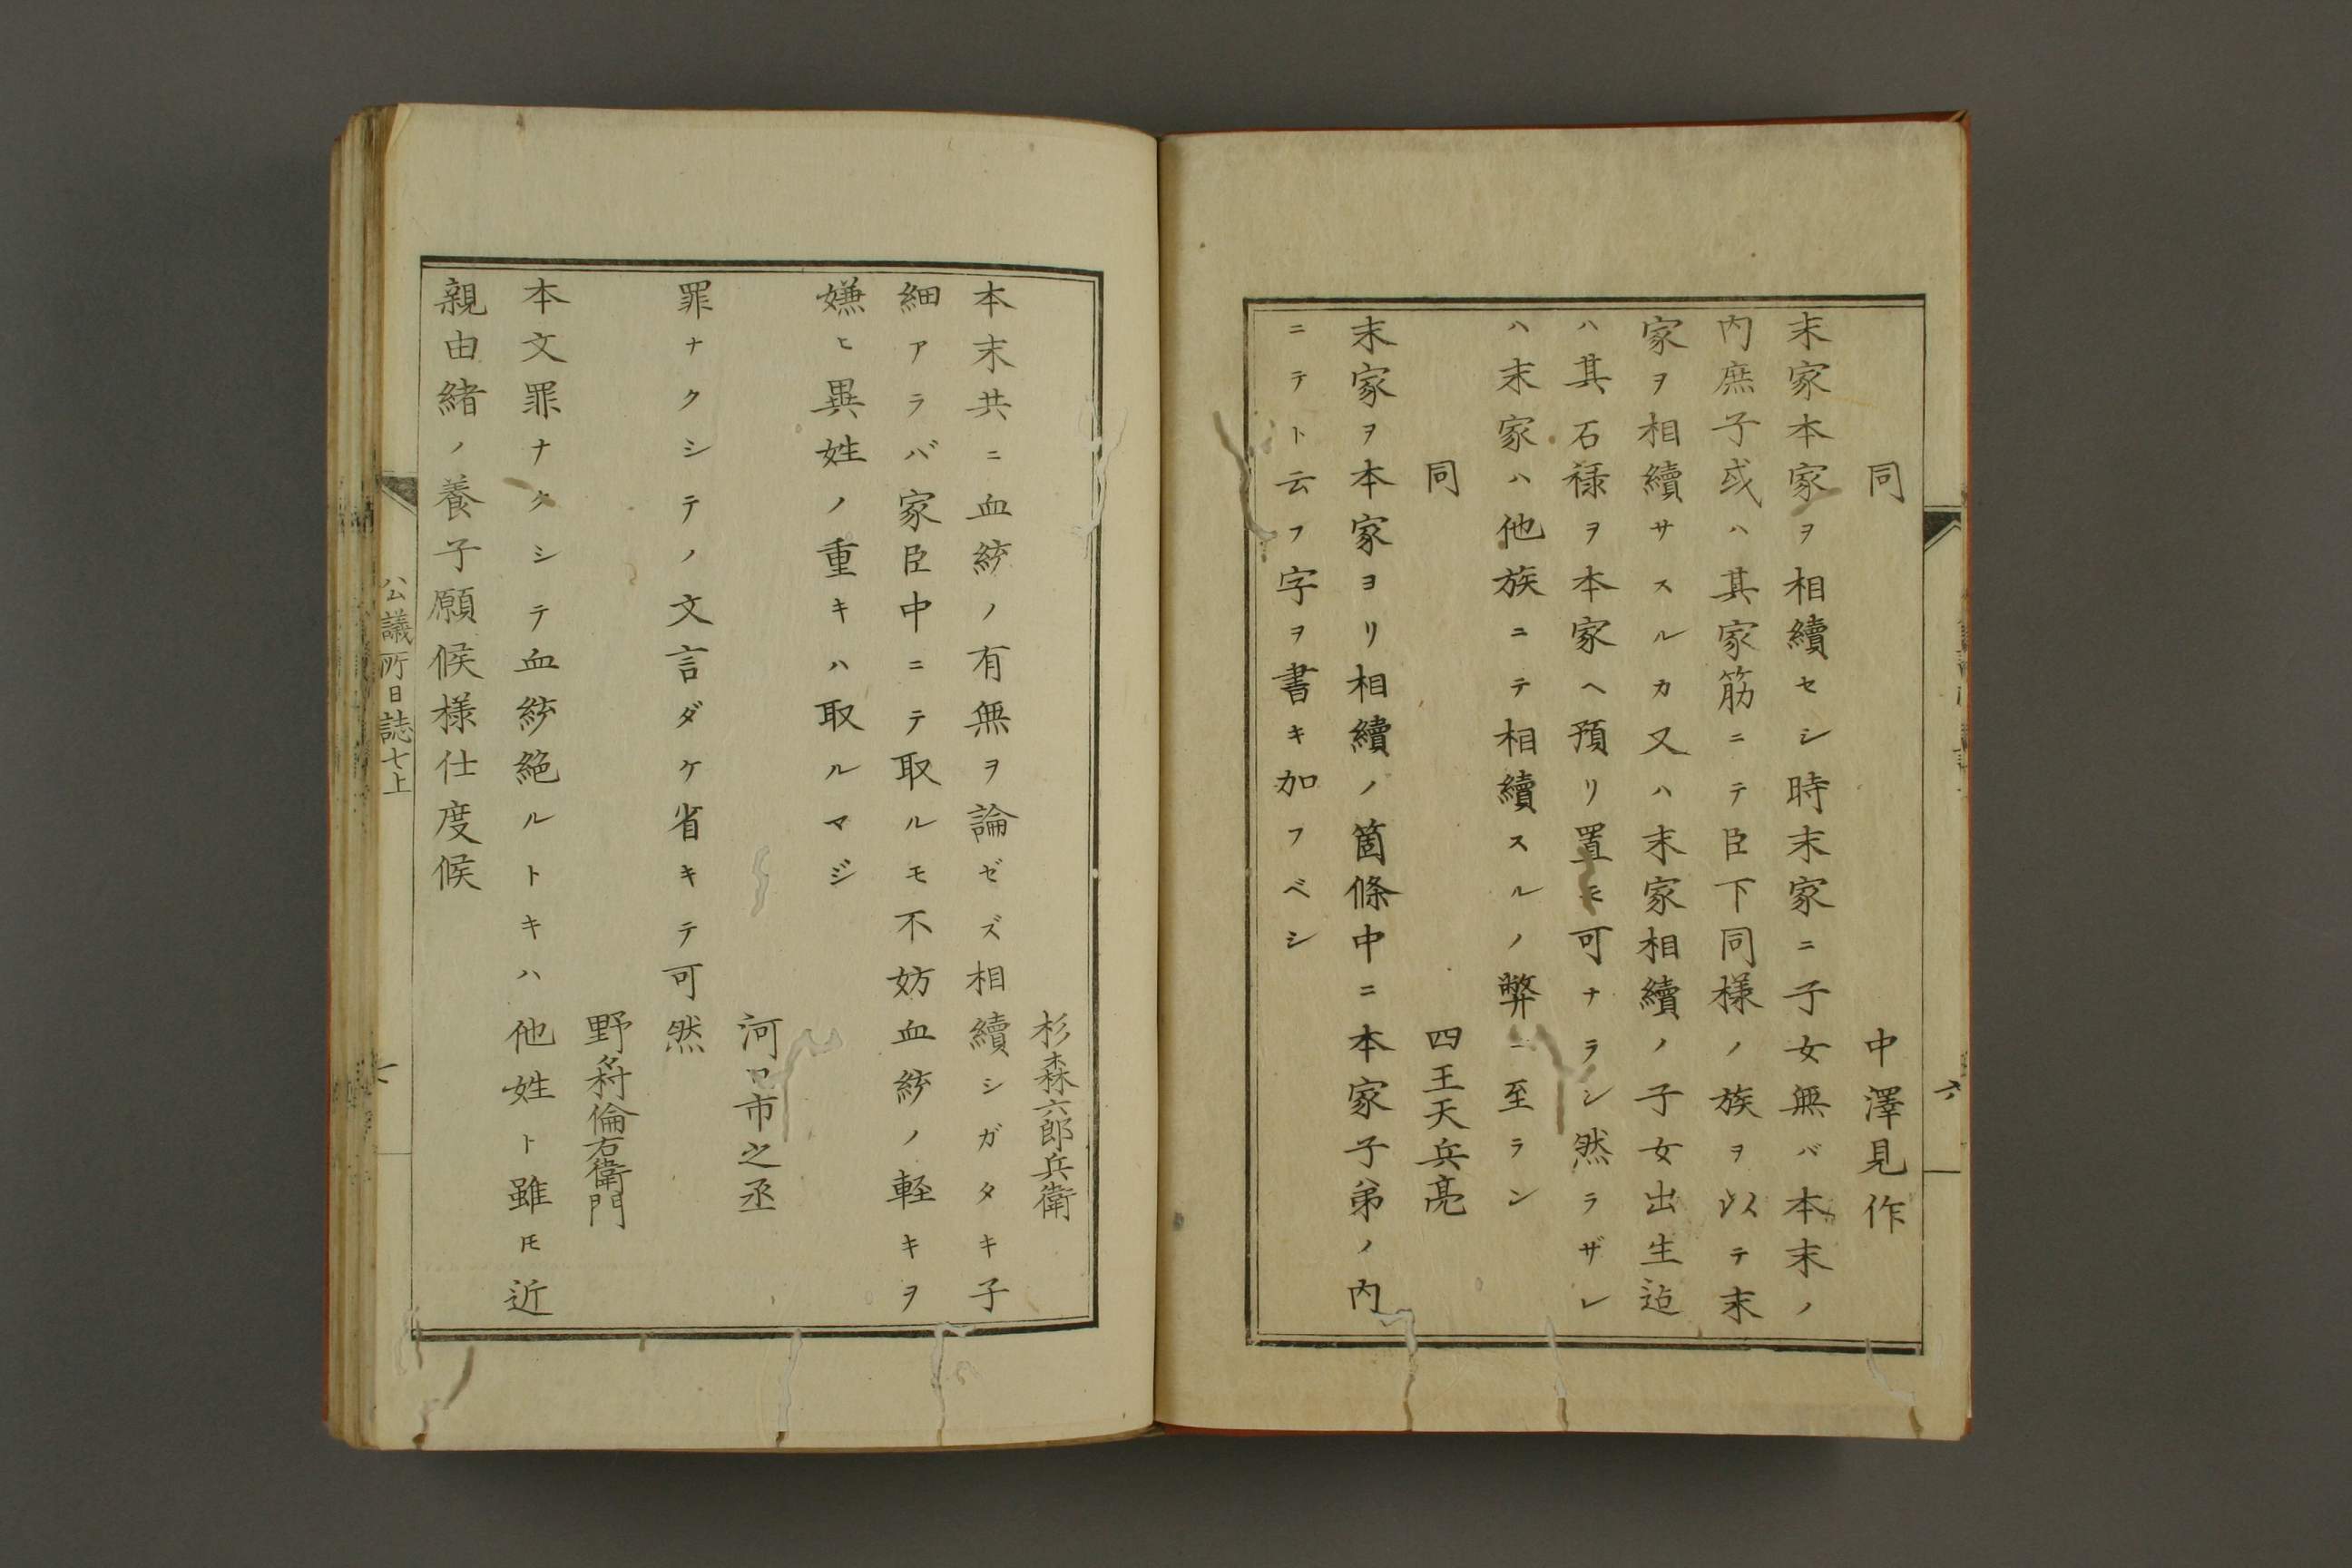 同 中澤見作
末家本家ヲ相續セシ時末家ニ子女無バ本末ノ
内庶子或ハ其家筋ニテ臣下同様ノ族ヲ以テ末
家ヲ相續サスルカ又ハ末家相續ノ子女出生迠
ハ其石禄ヲ本家ヘ預リ置モ可ナラン然ラザレ
ハ末家ハ他族ニテ相續スルノ弊ニ至ラン
同 四王天兵亮
末家ヲ本家ヨリ相續ノ箇條中ニ本家子弟ノ内
ニテト云フ字ヲ書キ加フベシ
六
杉森六郎兵衛
本末共ニ血統ノ有無ヲ論ゼズ相續シガタキ子
細アラバ家臣中ニテ取ルモ不妨血統ノ軽キヲ
嫌ヒ異姓ノ重キハ取ルマジ
河口市之丞
罪ナクシテノ文言ダケ省キテ可然
野々村倫右衛門
本文罪ナクシテ血統絶ルトキハ他姓ト雖モ近
親由緒ノ養子願候様仕度候
公議所日誌七上